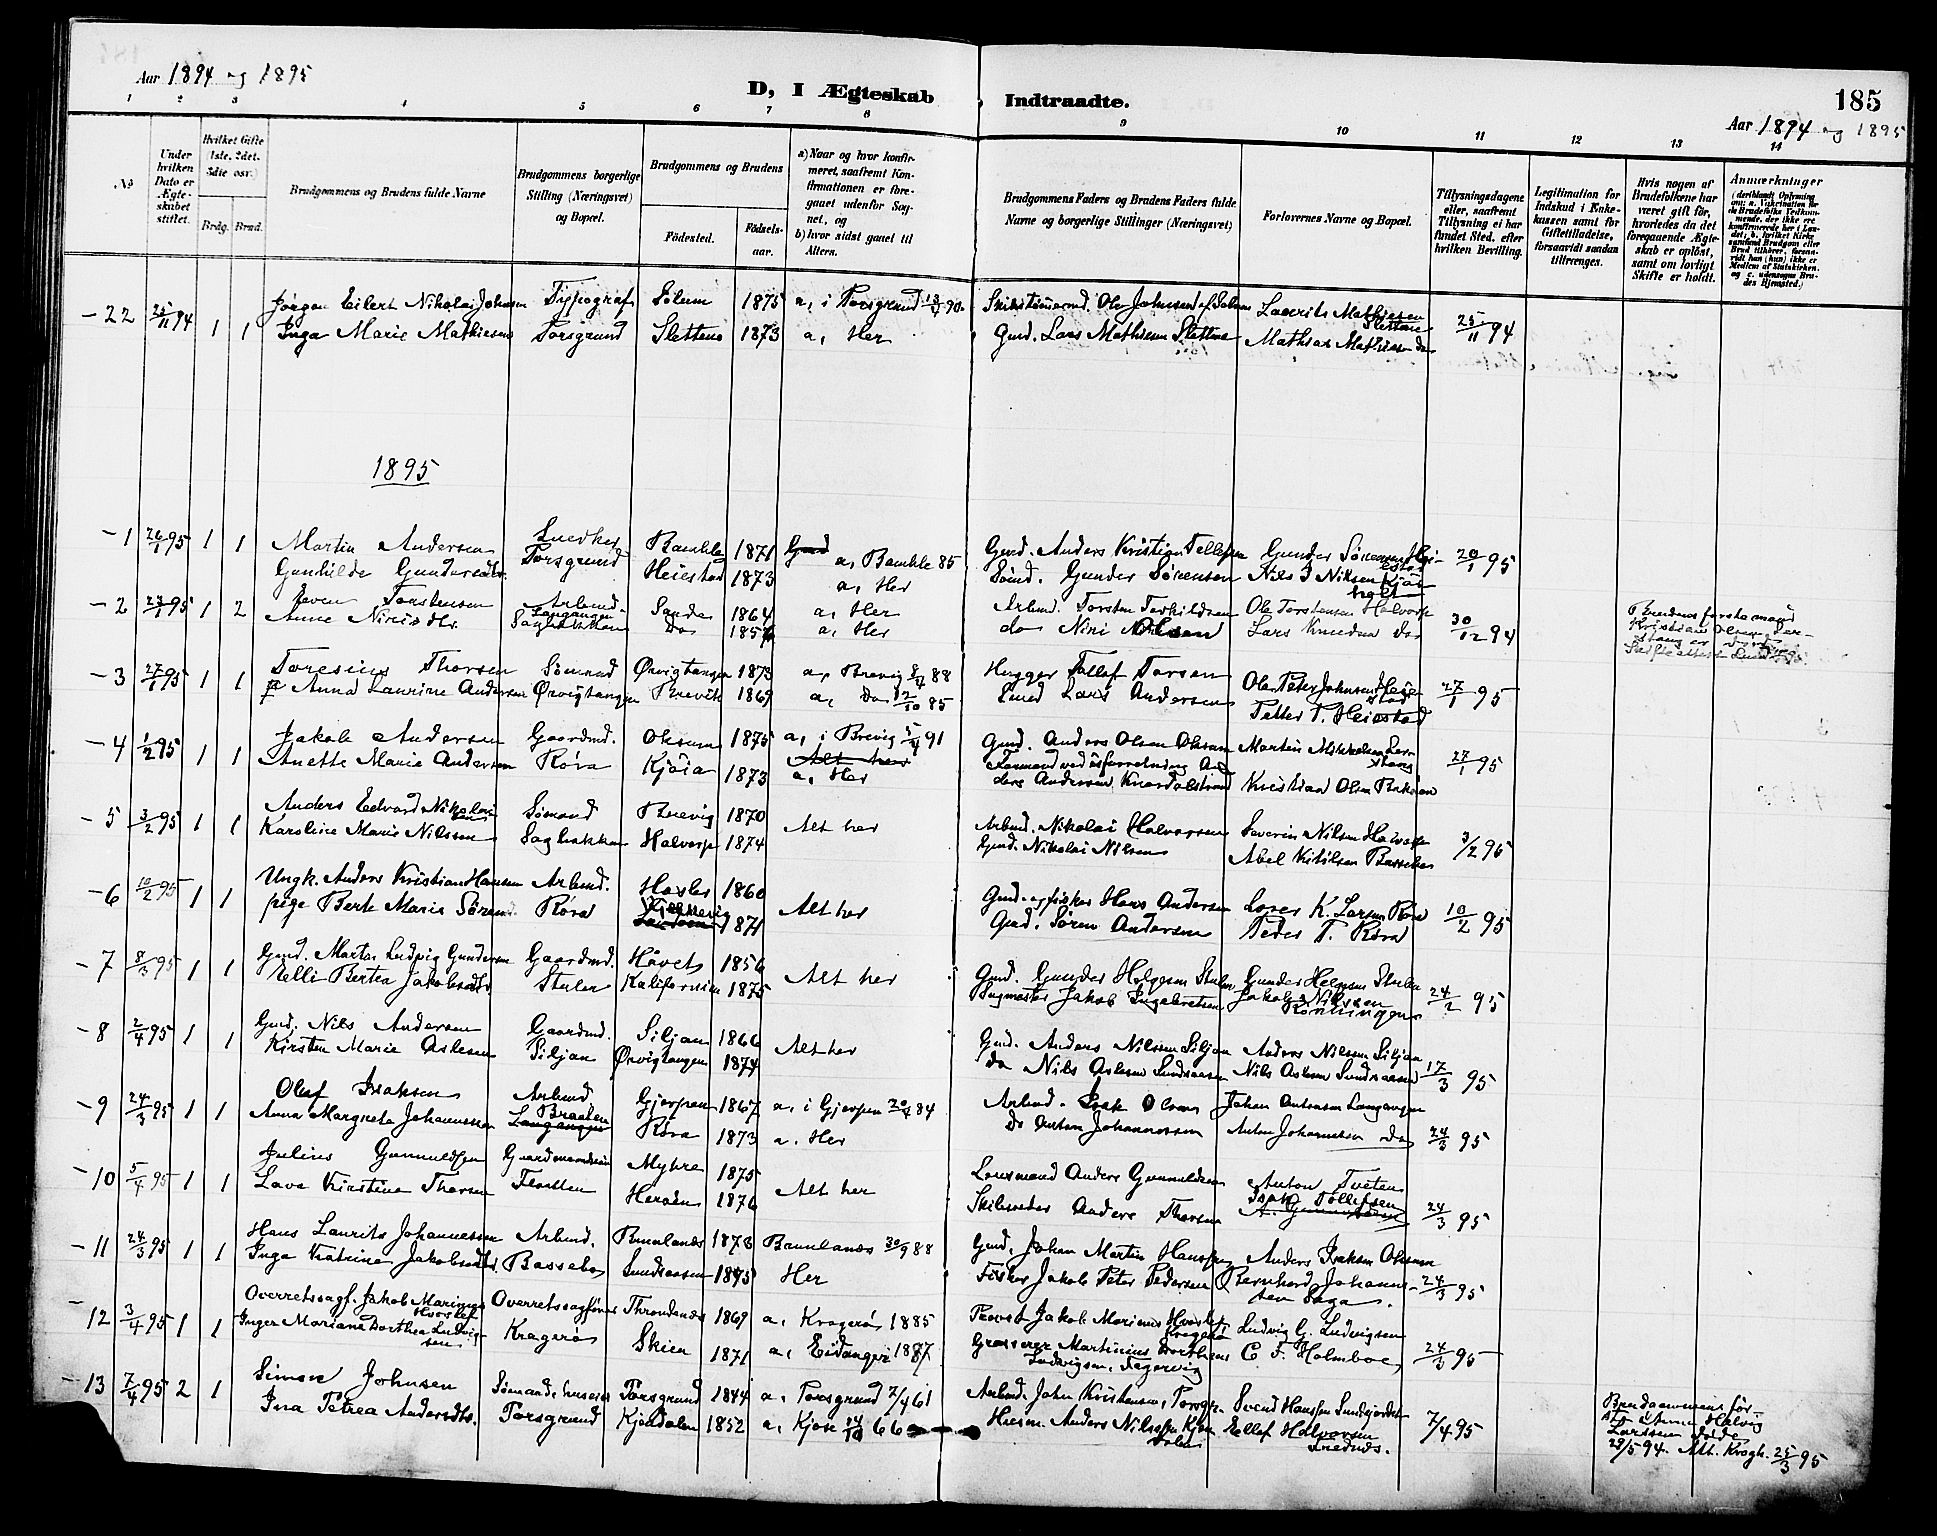 Aar 1894 og 1895
D, I Ægteskab Indtraadte.
185
Aar 1894 og 1895
1 2 3 4 5 6 7 8 9 10 11 12 13 14
No
Under hvilken Dato er Ægteskabet stiftet.
Hvilket Gifte (1ste, 2det, 3die osv.)
Brdg. Brud.
Brudgommens og Brudens fulde Navne
Brudgommens borgerlige Stilling (Næringsvei) og Bopæl.
Brudgommens og Brudens
Fødested. Fødselsaar.
a) Naar og hvor konfirmeret, saafremt Konfirmationen er foregaaet udenfor Sognet, og
b) hvor sidst gaaet til Alters.
Brudgommens Faders og Brudens Faders fulde Navne og borgerlige Stillinger (Næringsvei)
Forlovernes Navne og Bopæl.
Tillysningsdagene eller, saafremt Tillysning ei har fundet Sted, efter hvilken Bevilling.
Legitimation for Indskud i Enkekassen samt for Giftetilladelse, forsaavidt saadan tiltrænges.
Hvis nogen af Brudefolkene har været gift før, hvorledes da det foregaaende Ægteskab er opløst, samt om lovligt Skifte er holdt.
Anmærkninger
22 25/11 94 1 1 Jørgen Eilert Nikolai Johnsen Typograf Solum 1875 a, i Porsgrund 13/4 90. Olav Johnsen af Solum Laurits Mathiesen Slettene 25/11 94
Inga Marie Mathiesen Porsgrund Slettene 1873 a, Her Gmd. Lars Mathiesen Slettene Mathias Mathisen do
1895
1 26/1 95 1 1 Martin Andersen Snedker Bamble 1871 a, Bamble 85 Gmd. Anders Kristian Tellefsen Gunder Sørensen Heistad 20/1 95
Gunhilde Gundersdtr. Porsgrund Heistad 1873 a, Her Sømd. Gunder Sørensen Nils J Nilsen Kjønholt
2 27/1 95 1 2 Even Torstensen Arbmd. Langangen Sande 1864 a, Her Arbmd. Torsten Terkildsen Ole Torstensen Halvorp 30/12 94
Anne Nirisdtr. Sagbakken Do 1856 a, Her do Niri Olsen Lars Knudsen do
Brudens første mand Kristian Olsen
3 27/1 95 1 1 Toresius Thorsen Sømand Ørvigtangen 1873 a, Brevig 88 Hugger Tollef Torsen Ole Peter Johnsen Heistad 27/1 95
Anna Laurine Andersen Ørvigtangen Brevik 1869 a, Do 12/10 85 Lars Andersen Petter T. Heistad
4 1/2 95 1 1 Jakob Andersen Gaardmd. Oksum 1875 a, i Brevig 5/4 91 Gmd. Anders Olsen Oksum Martin Mikkelsen 27/1 95
Anette Marie Andersen Røra Kjøia 1873 Alt her a, Her Anders Andersen Knardalstrand Kristian Olsen
5 3/2 95 1 1 Anders Edvard Nikolaisen Sømand Brevig 1870 Alt her Arbmd. Nikolai Halvorsen Severin Nilsen Halvorp 3/2 95
Karoline Marie Nilsen Sagbakken Halvorp 1874 Gmd. Nikolai Nilsen Abel Kitilsen Bassebo
6 10/2 95 1 1 Ungk. Anders Kristian Hansen Arbmd. Hasler 1860 Alt her Gmd. og fisker Hans Andersen Lars K. Larsen Røra 10/2 95
pige Berte Marie Sørensd. Røra 1871 Gmd. Søren Andersen Peder T. Røra
7 8/3 95 1 1 Gmd. Martin Ludvig Gundersen Gaardmd. Håvet 1856 Alt her Gmd. Gunder Helgesen Stulen Gunder Helgesen Stulen 24/2 95
Elli Bertea Jakobsdtr. Stulen Kalifornien 1875 Bugmester Jakob Ingebretsen Jakob Nilssen Rønningen
8 2/4 95 1 1 Gmd. Nils Andersen Gaardmd. Siljan 1866 Alt her Gmd. Anders Nilssen Siljan Anders Nilssen Siljan 17/3 95
Kirsten Marie Aslesen Siljan Ørvigtangen 1874 Do Nils Aslesen Sundsaasen Nils Aslesen Sundsaasen
9 24/3 95 1 1 Olaf Isaksen Arbmd. Braaten Gjerpen 1867 a, i Gjerpen 20/4 84 Arbmd. Isak Olsen Johan Antonsen Langangen 24/3 95
Anna Margrete Johannessen Langangen Røra 1873 a. Her Do Anton Johannessen Anton Johannesen do
10 5/4 95 1 1 Julius Gunnuldsen Myhre 1875 Alt her Lensmand Anders Gunnuldsen Anton Tveten 24/3 95
Lava Kirstine Thorsen Flaatten Herøen 1876 Skibsreder Anders Thorsen Isak Tollefsen
11 24/3 95 1 1 Hans Laurits Johannessen Arbmd. Brunlanæs 1873 Brunlanæs 30/9 88 Gmd. Johan Martin Hanssen Anders Isaksen Oksum 24/3 95
Inga Katrine Jakobsdtr. Bassebo Sundsaasen 1875 Her Fisker Jakob Peter Pedersen Bernhard Johannesen Saga.
12 3/4 95 1 1 Overretssagf. Jakob Marinius Hvoslef Overretssagfører Throndenæs 1869 a, Kragerø 1885 Provst Jakob Marinus Hvoslef, Kragerø Ludvig G. Ludvigsen 24/3 95
Inger Mariane Dorthea Ludvigsen Kragerø Skien 1871 a, Eidanger 1887 Grosserer Martinius Dorthens Ludvigsen, Fagervig C. F. Holmboe,
13 7/4 95 2 1 Simen Johnsen Porsgrund 1844 a, Porsgrund 7/4 61 Arbmd. John Kristensen, Porsgr. Svend Hanssen Sundjordet 7/4 95
Ina Petrea Andersdtr. Porsgrund Kjendalen 1852 a, Kjose 14/10 66 Husm. Anders Nilssen Kjendalen Ellef Halvorsen
Brudgommens første Anne Halvig Larssen døde 29/5 94. Att. Krogh. 25/3 95